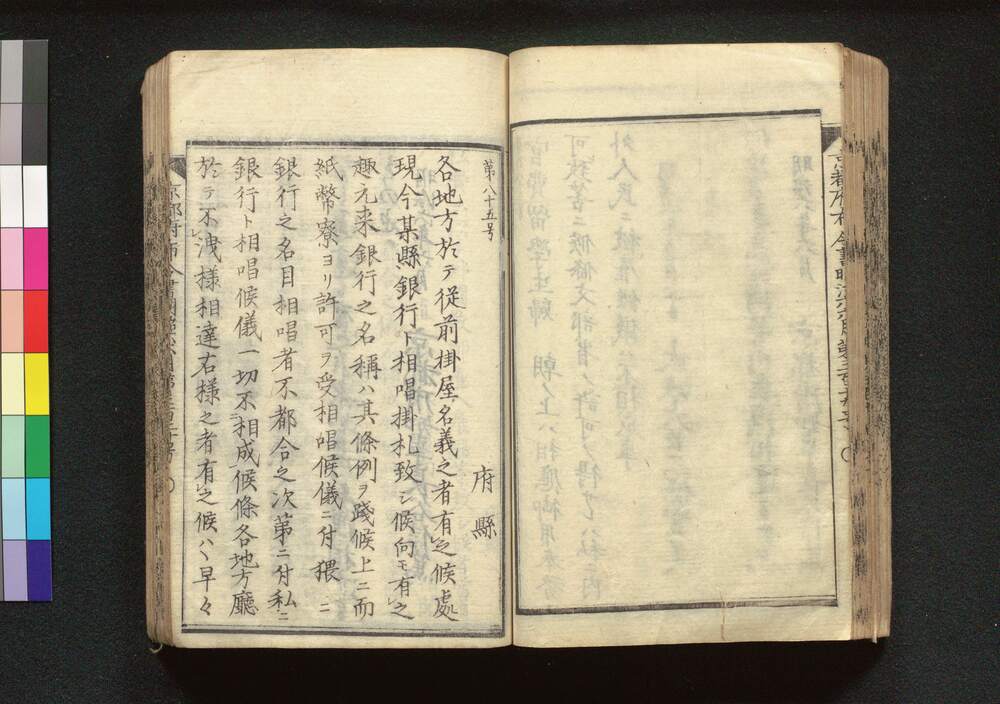 第八十五号
府縣
各地方於テ従前掛屋名義之者有之候處
現今某縣銀行ト相唱掛札致シ候向モ有之
趣元来銀行之名稱ハ其條例ヲ踐候上ニ而
紙幣寮ヨリ許可ヲ受相唱候儀ニ付猥ニ
銀行之名目相唱者不都合之次第ニ付私ニ
銀行ト相唱候儀一切不相成候條各地方廳
於テ不洩様相達右様之者有之候ハヽ早々